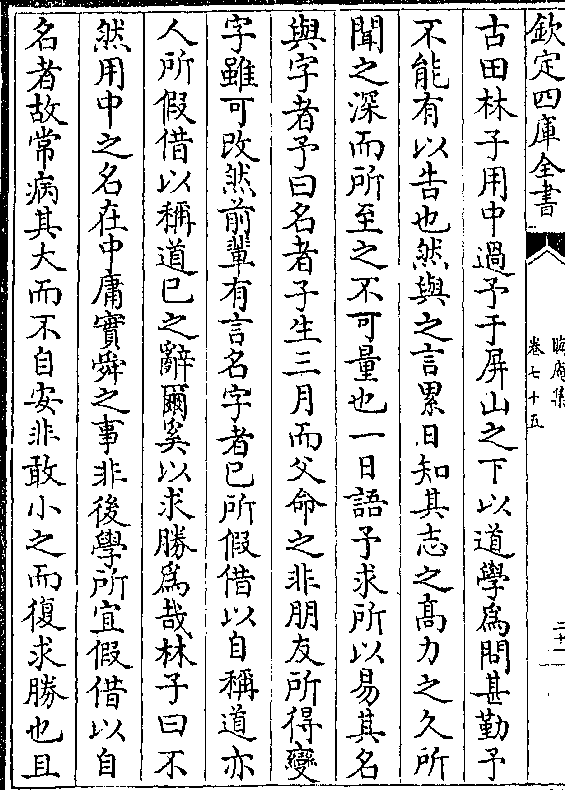 欽定四庫全書
晦庵集
卷七十五
二十一
古田林子用中過予于屏山之下以道學為問甚勤予
不能有以告也然與之言累日知其志之高力之久所
聞之深而所至之不可量也一日語予求所以易其名
與字者予曰名者子生三月而父命之非朋友所得變
字雖可改然前輩有言名字者已所假借以自稱道亦
人所假借以稱道已之辭爾奚以求勝為哉林子曰不
然用中之名在中庸實舜之事非後學所宜假借以自
名者故常病其大而不自安非敢小之而復求勝也且